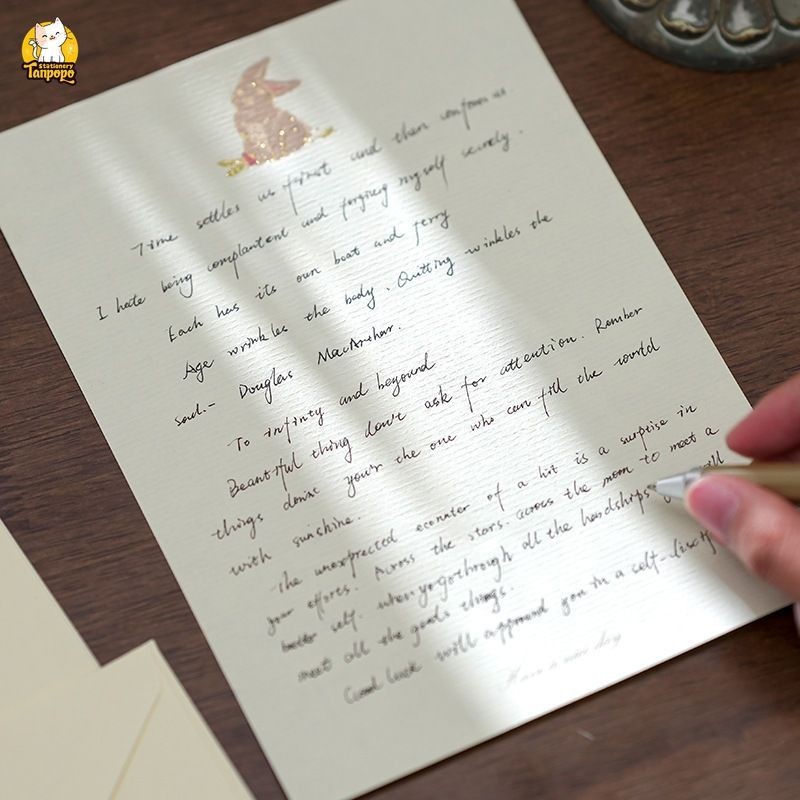 Stationery
Tanpopo
Time settles us first and then conforms us
I hate being complantent and forgiving myself secretly.
Each has its own boat and ferry
Age wrinkles the body. Quitting wrinkles the
soul.- Douglas MacArthar.
To infinty and beyound
Beautiful thing don't ask for attention. Rember
things done your the one who can fill the world
with sunshine.
the unexprected econter of a hit is a surprise in
your efforts. Across the stars. across the moon to meet a
better self. when yo go through all the handships will
meet all the goods things.
Good luck will appround you in a self-
Have a nice day